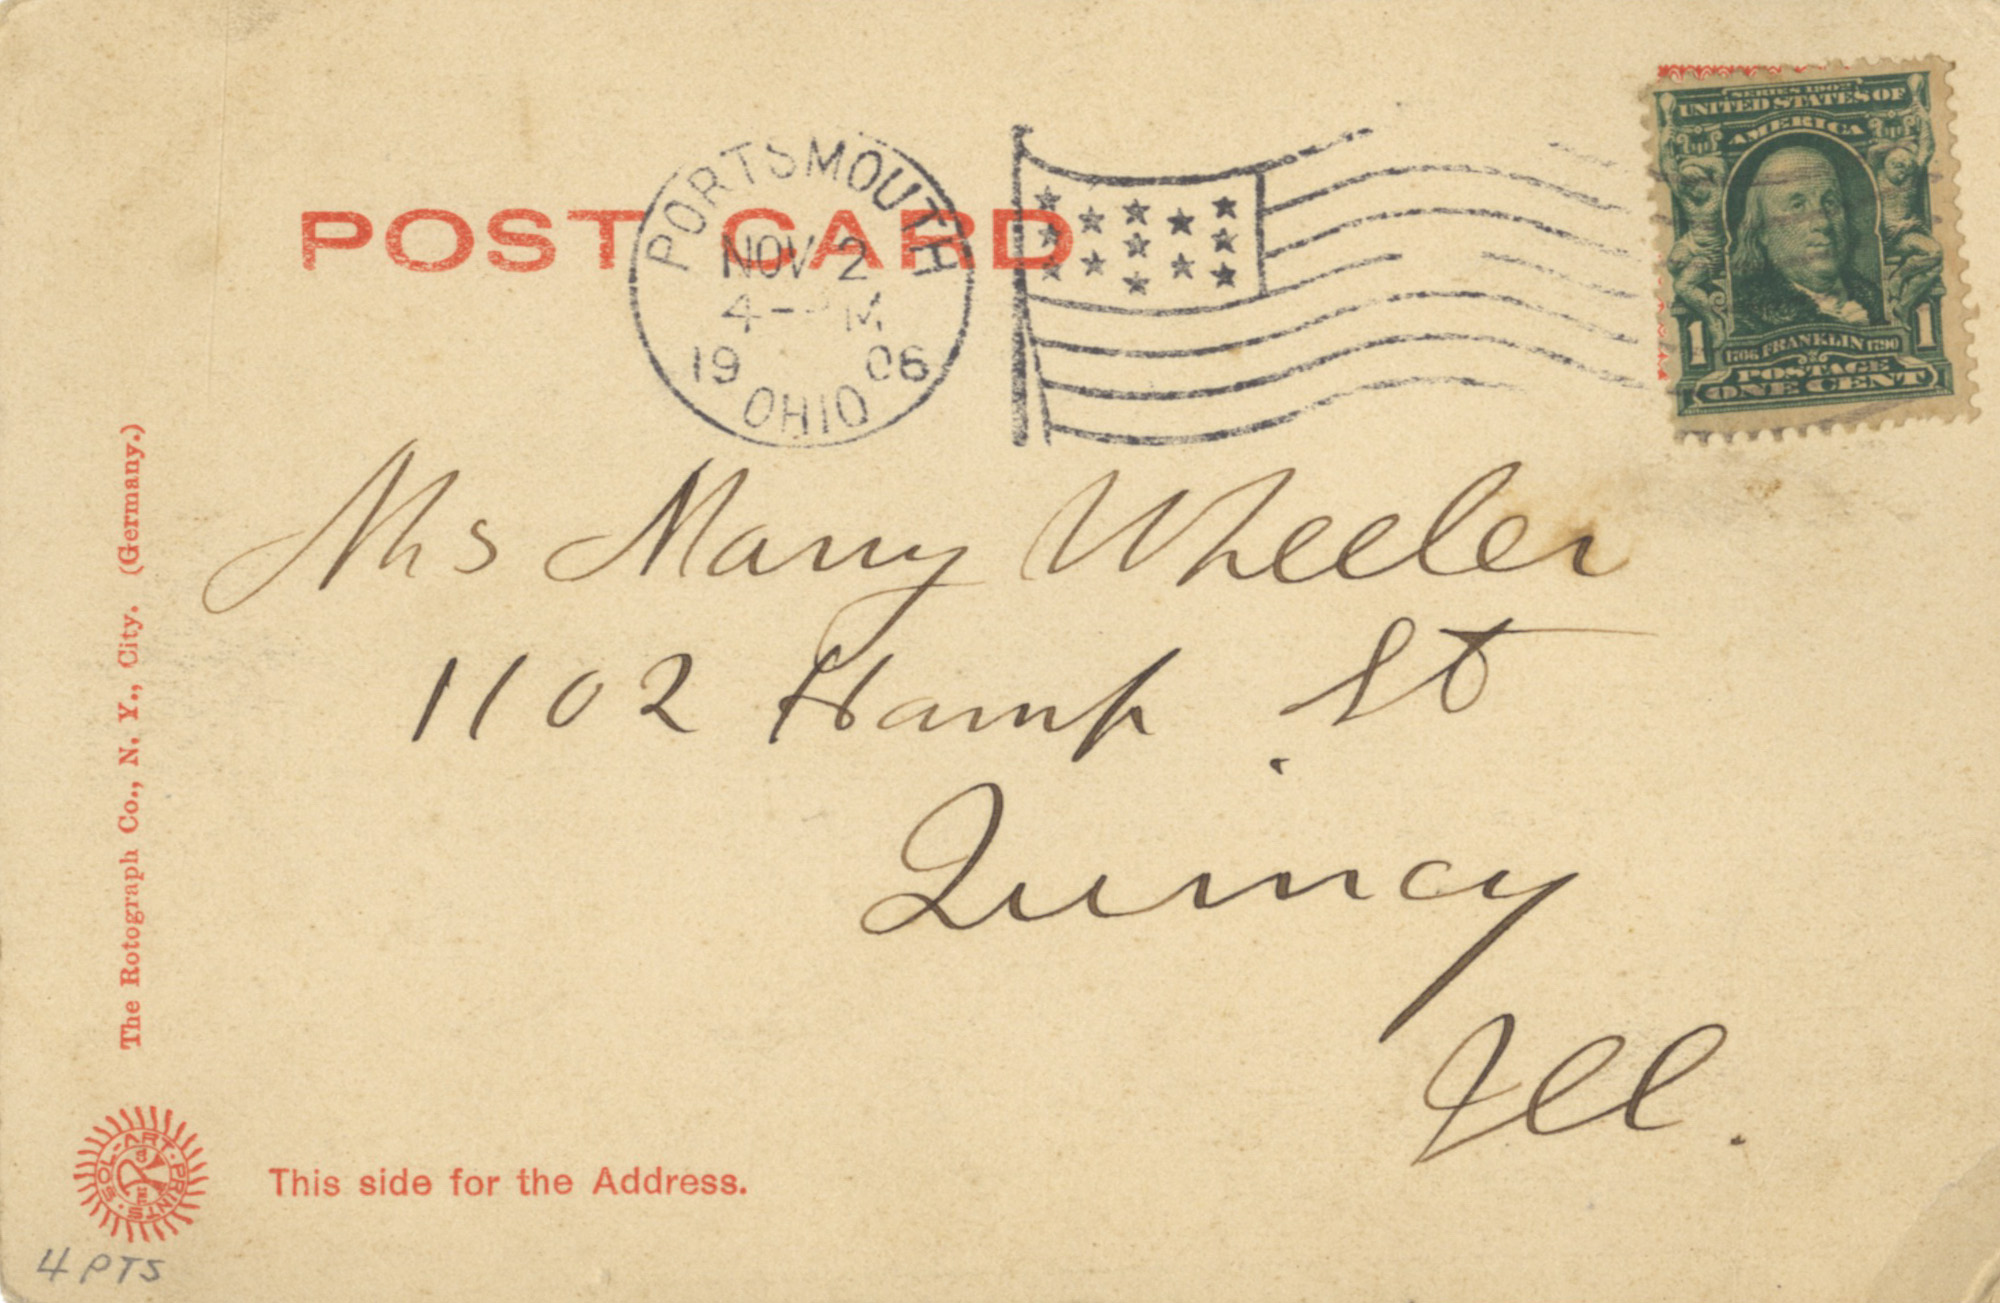 POST CARD
PORTSMOUTH
NOV 2
4-PM
1906
OHIO
SERIES 1902
UNITED STATES OF
AMERICA
1 1
1706 FRANKLIN 1790
POSTAGE
ONE CENT
Mrs Mary Wheeler
1102 Hamp St
Quincy
Ill.
The Rotograph Co., N. Y., City. (Germany.)
SOL-ART PRINTS
This side for the Address.
4 PTS